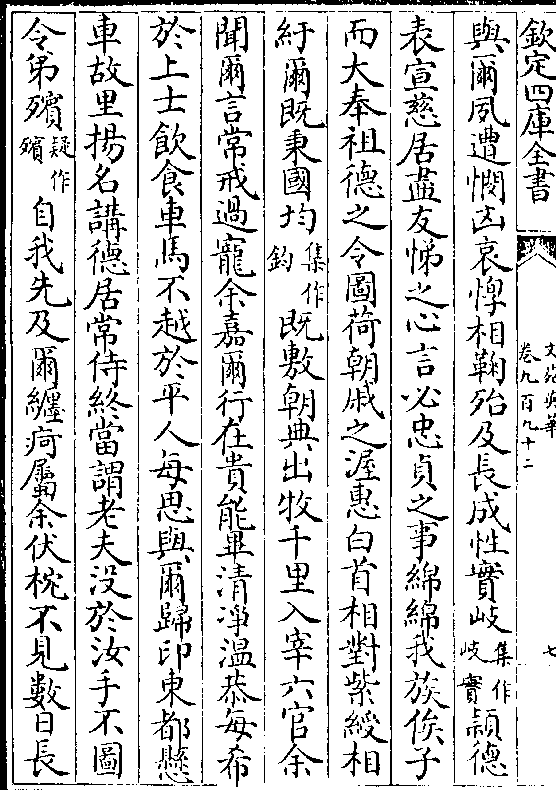 欽定四庫全書
文苑英華
卷九百九十二
七
與爾夙遭憫凶哀惸相鞠殆及長成性實岐集作岐實穎德
表宣慈居盡友悌之心言必忠貞之事綿綿我族俟子
而大奉祖德之令圖荷朝戚之渥惠白首相對紫綬相
紆爾既秉國均集作鈞既敷朝典出牧千里入宰六官余
聞爾言常戒過寵余嘉爾行在貴能畢清浄温恭每希
於上士飲食車馬不越於平人每思與爾歸印東都懸
車故里揚名講德居常侍終當謂老夫没於汝手不圖
令弟殯疑作殯自我先及爾纏疴屬余伏枕不見數日長